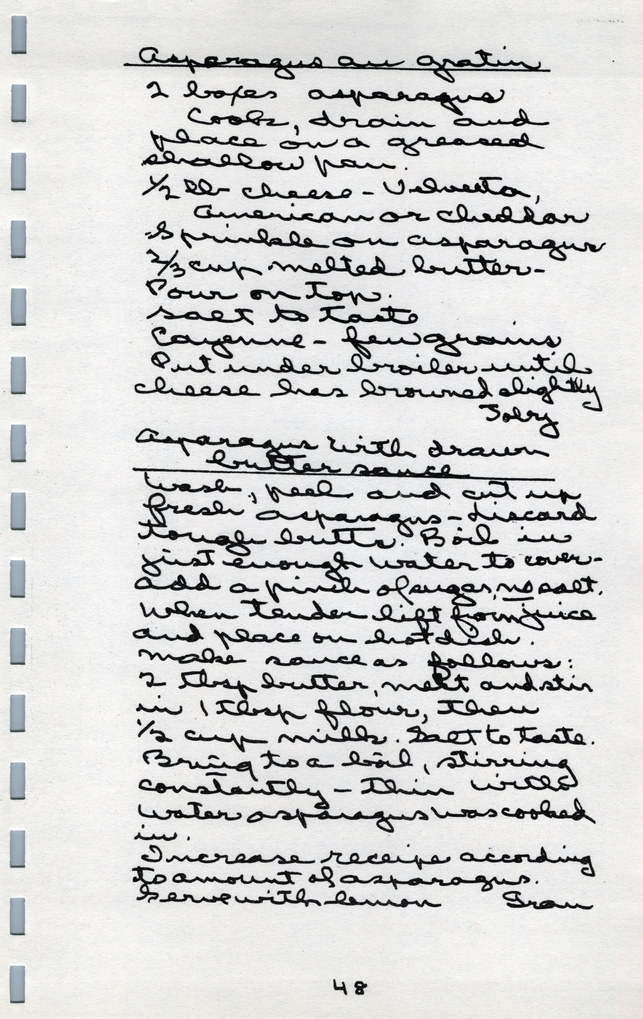 Asparagus au gratin
2 boxes asparagus
Cook, drain and
place on a greased
shallow pan.
1/2 lb cheese - Velveeta,
American or cheddar
Sprinkle on asparagus
2/3 cup melted butter -
Pour on top.
Salt to taste
Cayenne - few grains
Put under broiler until
cheese has browned slightly
Asparagus with drawn
butter sauce
Wash, peel and cut up
fresh asparagus - discard
tough butts. Boil in
just enough water to cover -
add a pinch of sugar, no salt.
When tender lift from juice
and place on hot dish.
Make sauce as follows:
2 tbsp butter, melt and stir
in 1 tbsp flour, then
1/2 cup milk. Salt to taste.
Bring to a boil, stirring
constantly - thin with
water asparagus was cooked
in.
Increase receipe according
to amount of asparagus.
Serve with lemon Gran
48